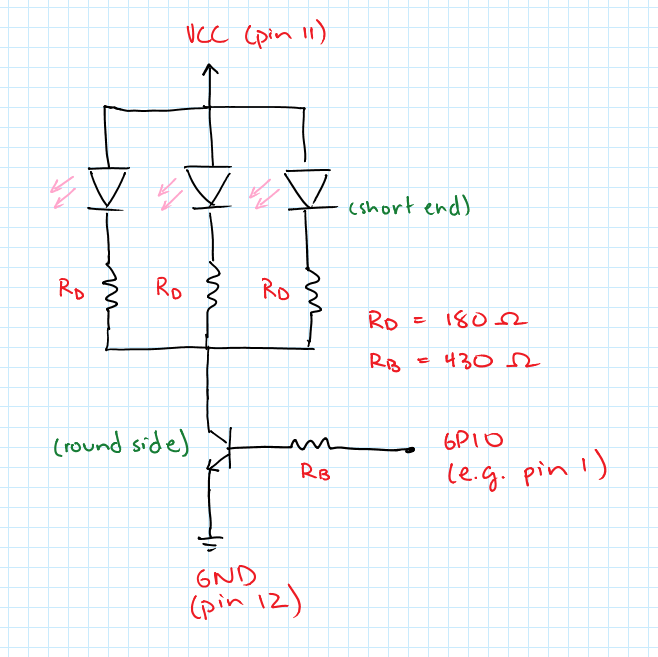 VCC (pin 11)
(short end)
RD RD RD
RD = 180 Ω
RB = 430 Ω
(round side)
GPIO
(e.g. pin 1)
RB
GND
(pin 12)